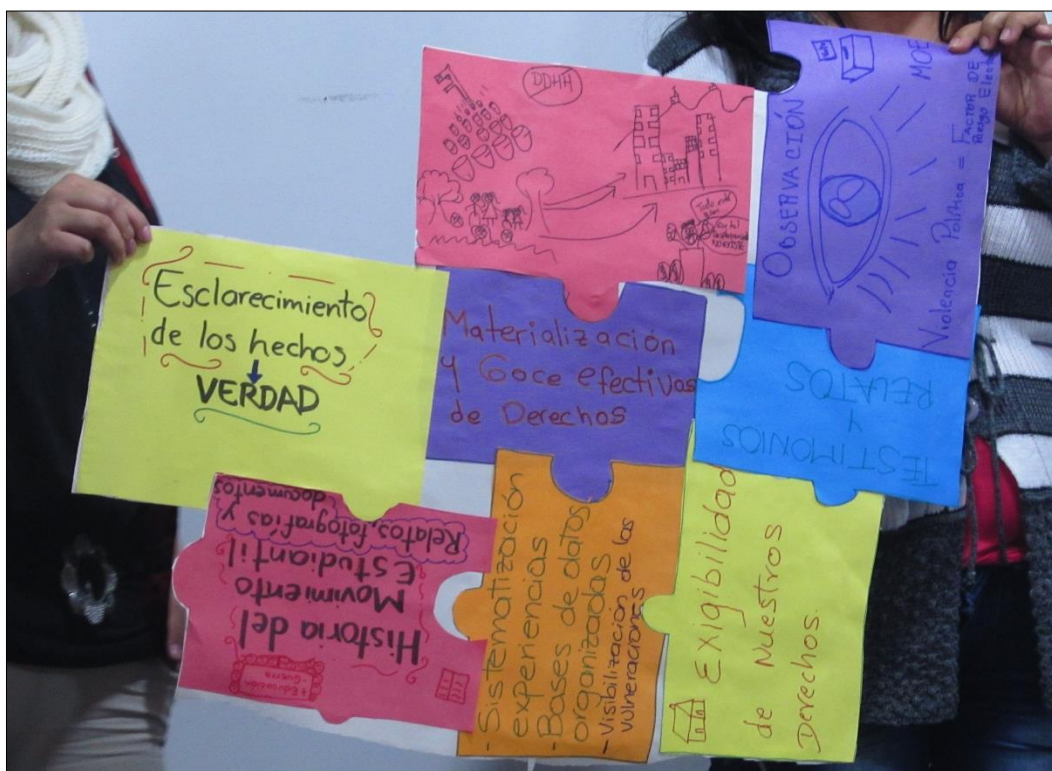 DDHH
Todo está
OBSERVACIÓN
MOE
Violencia Política = FACTOR DE
Riesgo Elect
Esclarecimiento
de los hechos
VERDAD
Materialización
y Goce efectivas
de Derechos
TESTIMONIOS
Y
RELATOS
Historia del
Movimiento
Estudiantil
Relatos, fotografías y
documentos
+ Educación
- Guerra
- Sistematización
experiencias
- Bases de datos
organizadas
- Visibilización de las
vulneraciones
Exigibilidad
de Nuestros
Derechos.